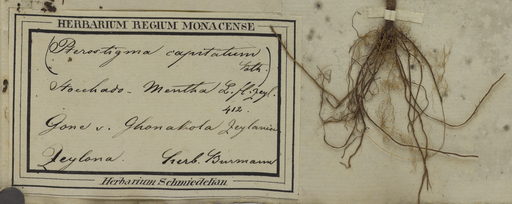 HERBARIUM REGIUM MONACENSE
(Pterostigma capitatum
Bth.)
Stoechado-Mentha L. fl. zeyl.
412.
Gone v. Ghonakola Zeylanis
Zeylona. herb. Burmann
Herbarium Schmiedelian